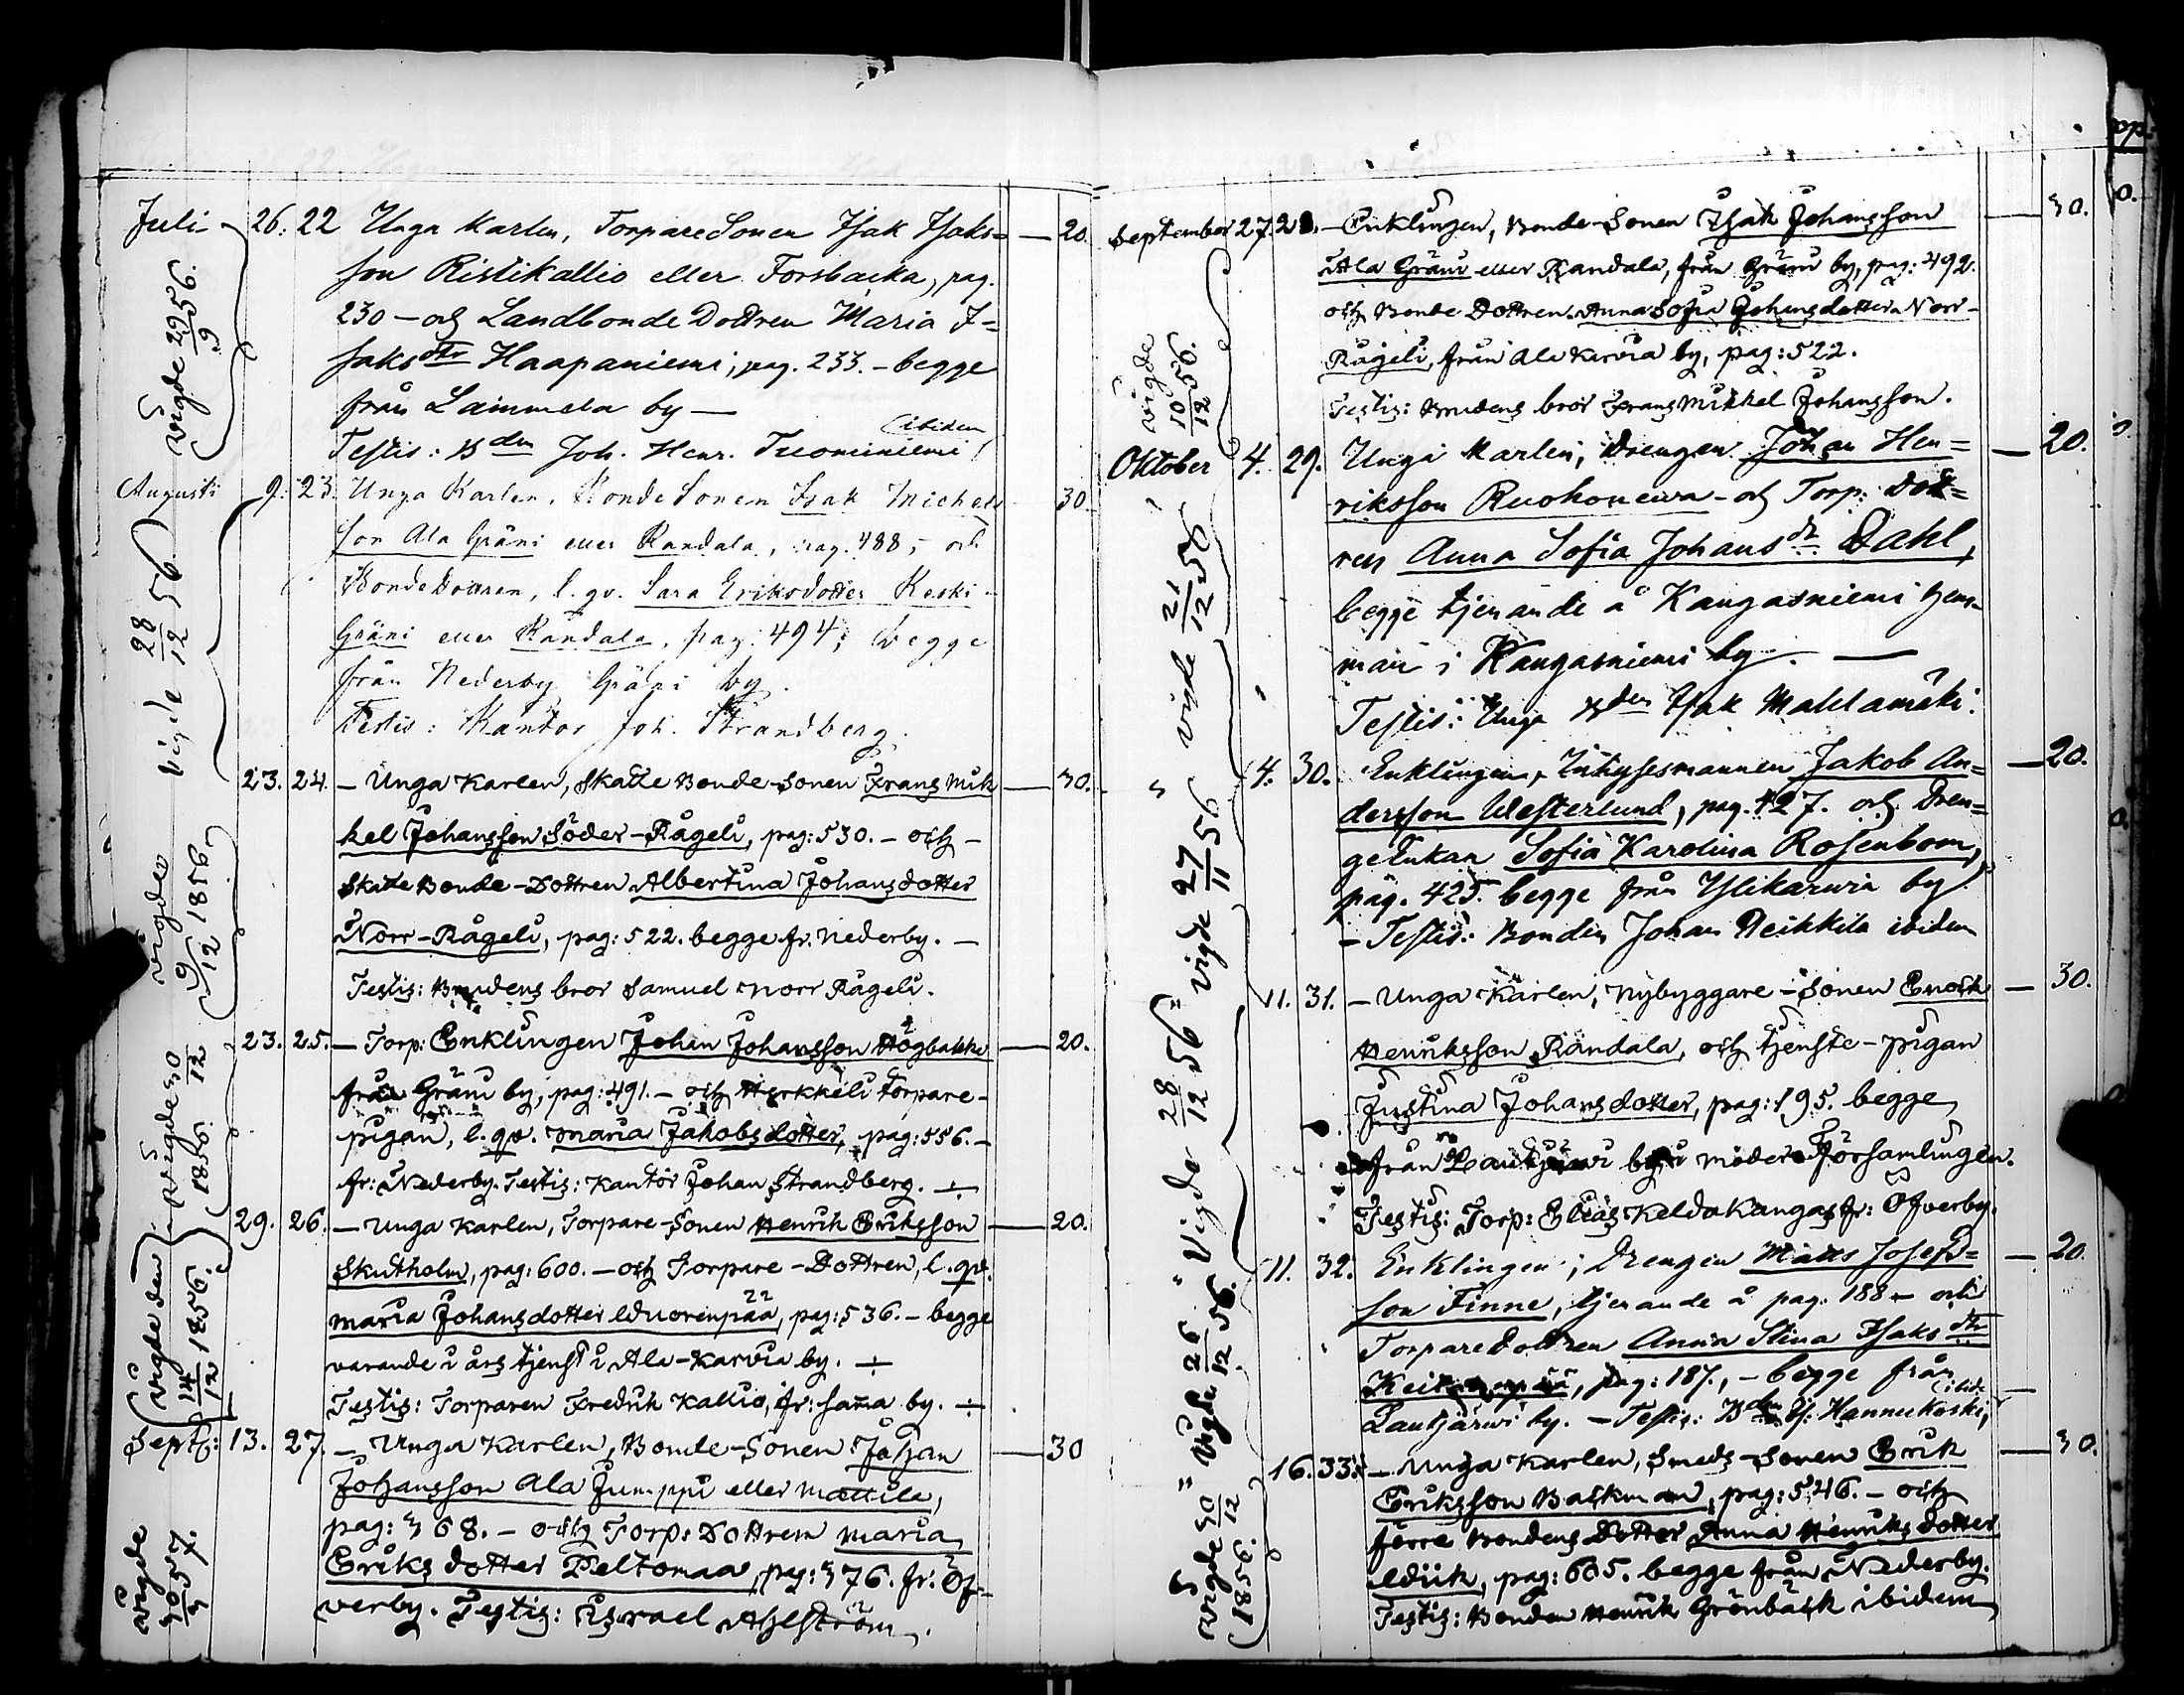 Juli 26. 22 Unga Karlen, TorpareSonen Isak Isaks= — 20.
son Ristikallio eller Forsbacka, pag.
230 — och LandbondeDottren Maria I=
saksdtr Haapaniemi, pag. 233. – begge
från Lammela by —
Testis: Bden Joh. Henr. Tuominiemi ibidem
vigde 29/9 56.
Augusti 9. 23. Unga Karlen, BondeSonen Isak Michels 30.
son Ala Gräni eller Randala, pag. 488, – och
BondeDottren, l. qv. Sara Eriksdotter Keski
Gräni eller Randala, pag. 494, begge
från Nederby Gräni by.
Testis: Kantor Joh. Strandberg.
vigde 28/12 56.
23. 24. — Unga Karlen, Skatte Bonde-Sonen Frans Mik — 30.
kel Johansson Söder-Rågeli, pag: 530. – och –
Skatte Bonde-Dottren Albertina Johansdotter
Norr-Rågeli, pag: 522. begge fr. Nederby. —
Testis: Brudens bror Samuel Norr Rågeli.
vigder 9/12 1856
23. 25. — Torp: Enklingen Johan Johansson Högbakka — 20.
från Gräni by, pag: 491. – och Herkkeli Torpare-
pigan, l. qv. Maria Jakobsdotter, pag: 556. –
fr: Nederby. Testis: Kantor Johan Strandberg. —
vigde 30/12 1856.
29. 26. — Unga Karlen, Torpare-Sonen Henrik Eriksson — 20.
Skutholm, pag: 600. – och Torpare-Dottren, l. qv.
Maria Johansdotter Wuorenpää, pag: 536. – begge
varande i års tjenst i Ala-Karvia by. —
Testis: Torparen Fredrik Kallio, fr: samma by. —
vigde den 14/12 1856.
Sept: 13. 27. — Unga Karlen, Bonde-Sonen Johan — 30
Johansson Ala Jumppi eller Mattila,
pag: 368. – och Torp: Dottren Maria
Eriks dotter Peltomaa, pag: 376. fr: Öf-
verby. Testis: Israel Ahlström.
vigde 30/3 57.
September 27. 28. — Enklingen, Bonde-Sonen Isak Johansson — 30.
Ala Gräni eller Randala, från Gräni by, pag: 492.
och Bonde Dottren Anna Sofia Johansdotter Norr-
Rågeli, från Ala Karvia by, pag: 522.
Testis: Brudens bror Frans Mikkel Johansson.
vigde 10/12 56.
Oktober 4. 29. Unga Karlen, Drengen Johan Hen= — 20.
riksson Ruohoneva – och Torp: Dott=
ren Anna Sofia Johansdr Dahl,
begge tjenande å Kangasniemi hem-
man i Kangasniemi by. —
Testis: Unga Bden Isak Mahlamäki.
vigde 21/12 56
" 4. 30. Enklingen, Inhysesmannen Jakob An= — 20.
dersson Westerlund, pag. 427. och Dren=
geEnkan Sofia Karolina Rosenbom,
pag. 425. begge från Ylikarvia by.
– Testis: Bonden Johan Heikkilä ibidem
vigde 27/11 56
11. 31. — Unga Karlen, Nybyggare-Sonen Enoch — 30.
Henriksson Rändala, och tjenste-pigan
Justina Johansdotter, pag: 195. begge
från Lautjärvi by i moder Församlingen.
Testis: Torp: Elias Keldokangas fr: Öfverby.
Vigde 28/12 56 "
11. 32. Enklingen, Drengen Matts Josefs= — 20.
son Finne, tjenande å pag. 188 – och
Torparedottren Anna Stina Isaksdtr
pag: 187., – begge från
Lautjärwi by. – Testis: Bden Is: Hannukoski, ibid
" vigde 26/12 56.
16. 33. — Unga Karlen, Smeds-Sonen Erik — 30.
Eriksson Backman, pag: 546. – och
förre Bondens Dotter Anna Henriks dotter
Wiik, pag: 605. begge från Nederby.
Testis: Bonden Henrik Grönback ibidem
vigde 30/12 1856. "